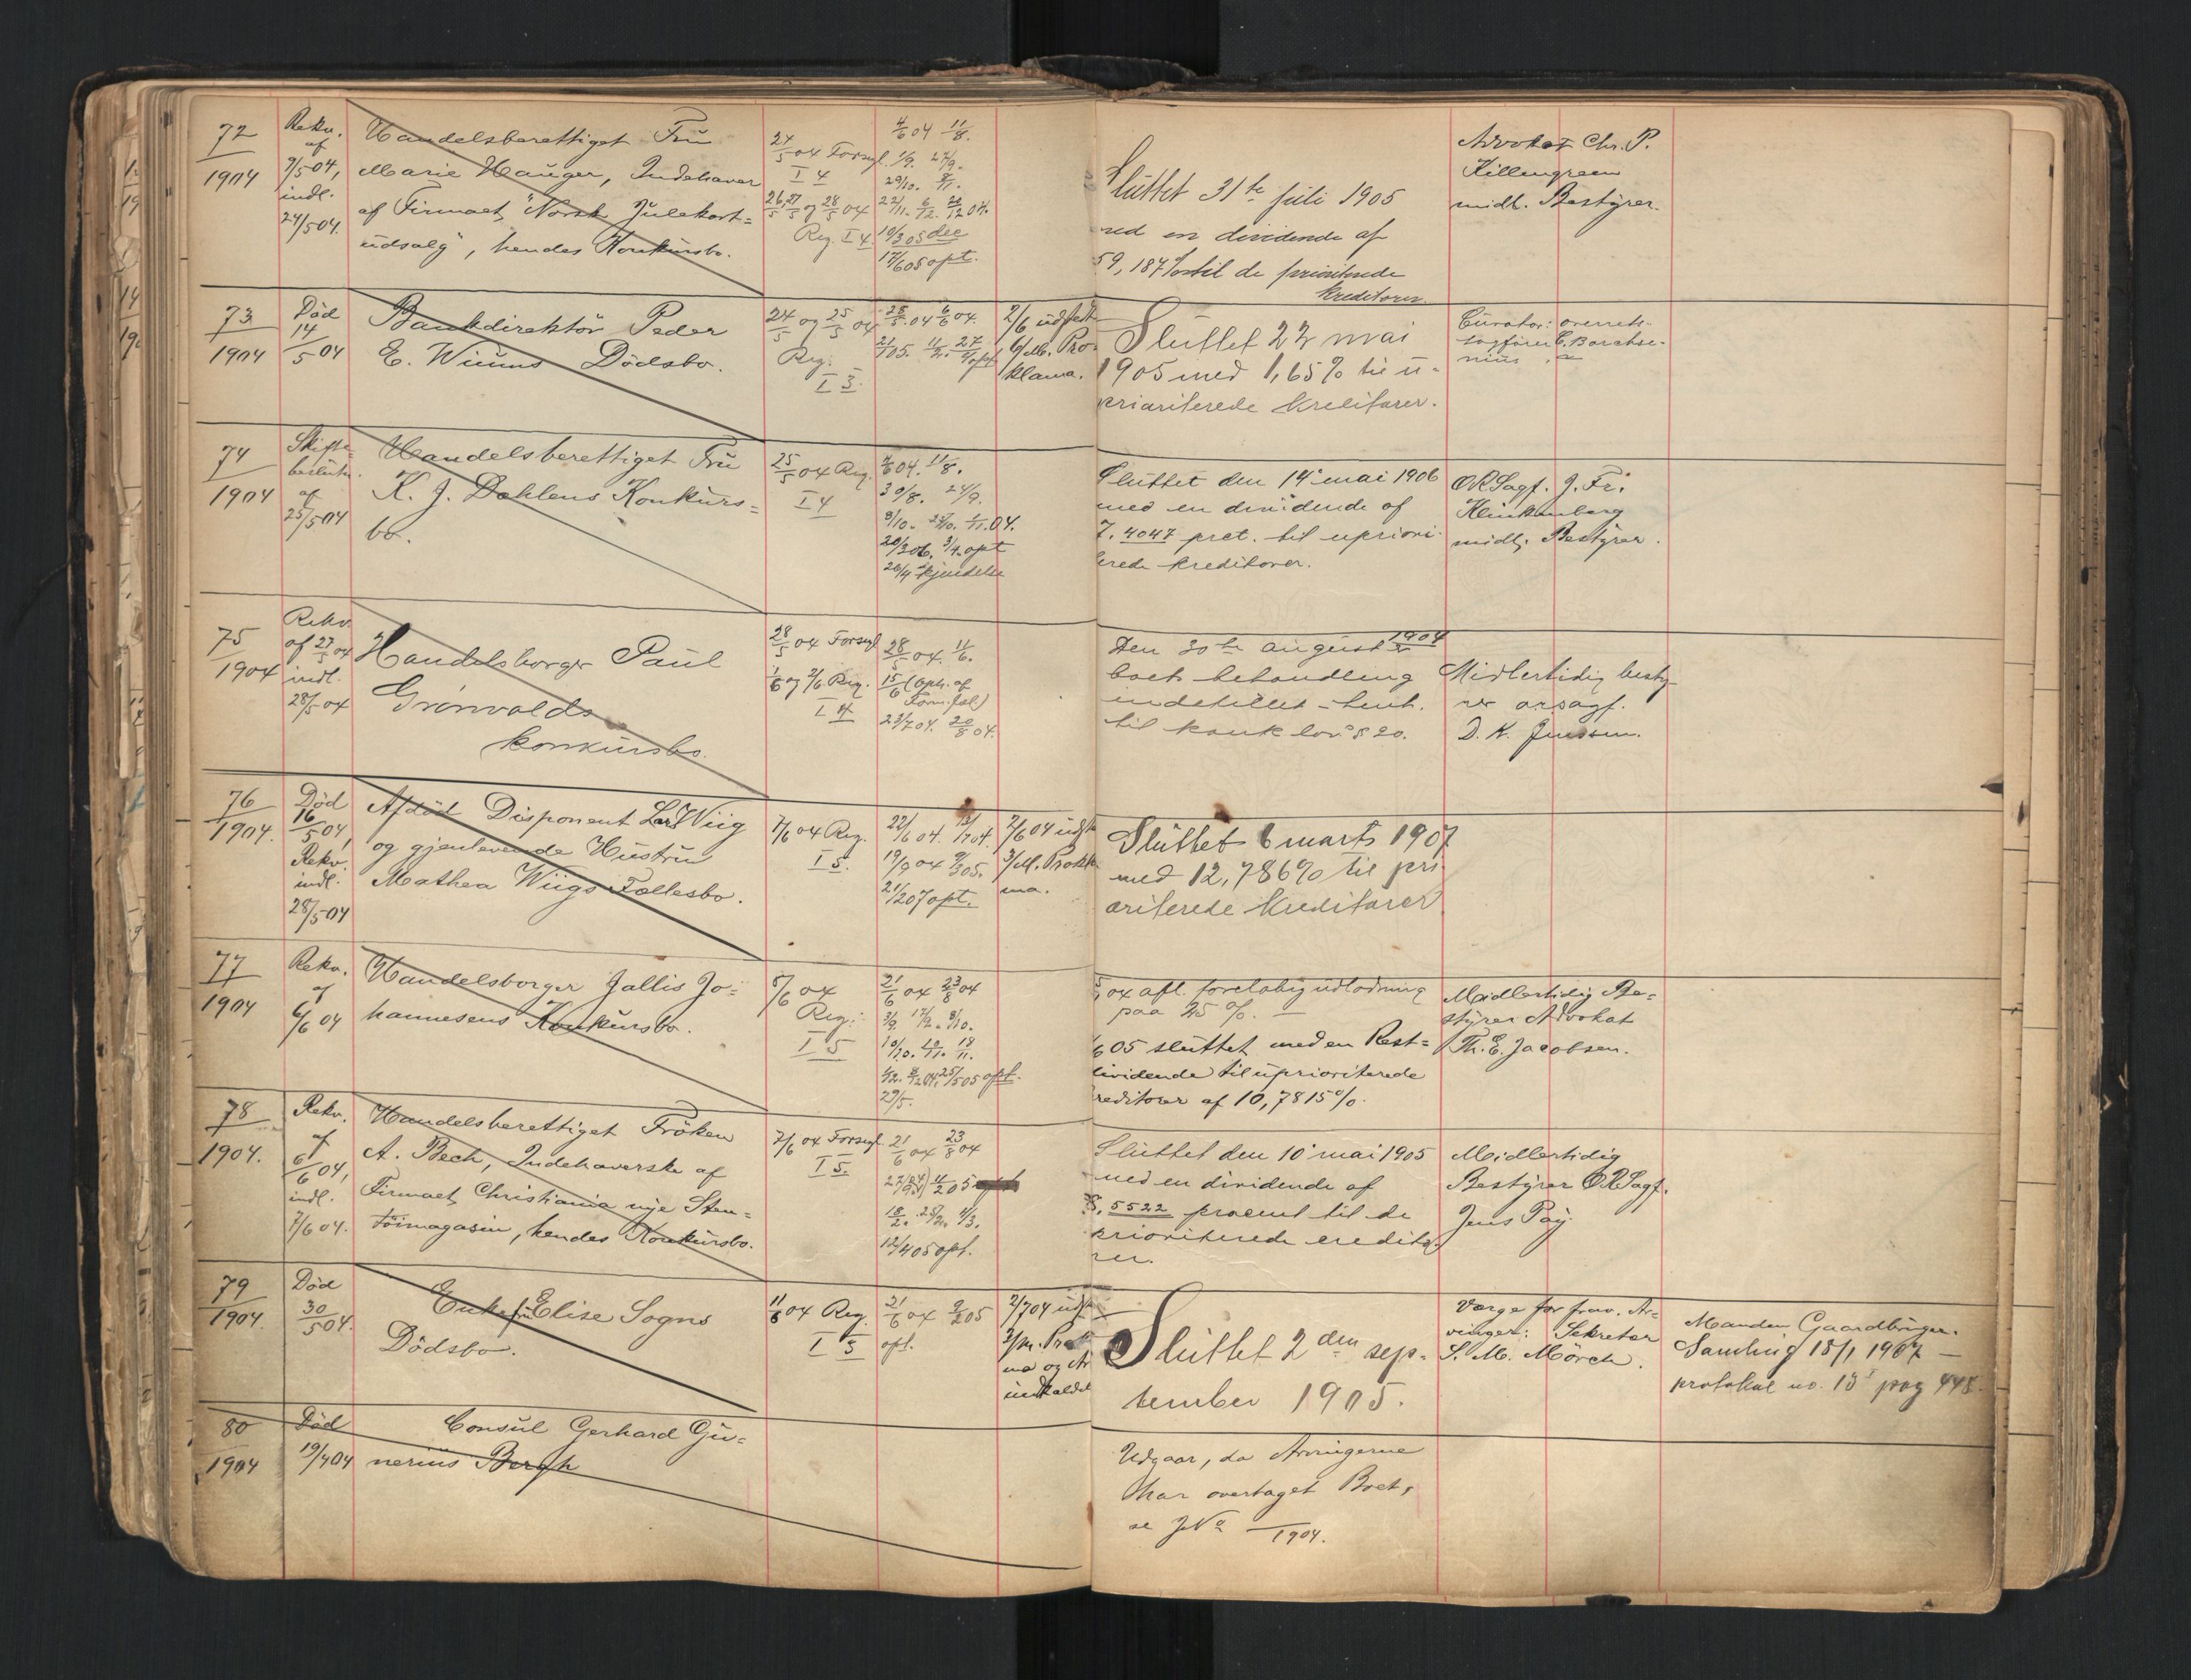 72
1904
Rekv.
af
9/5 04,
indl.
24/5 04.
Handelsberettiget Frü
Marie Haüger, Indehaver
af Firmaet "Norsk Julekort=
üdsalg", hendes Konkürsbo.
24/5 04 Forsegl.
I 4
26/5, 27/5 og 28/5 04
Reg. I 4.
4/6 04 11/8.
1/9. 27/9.
29/10. 8/11.
22/11. 6/12. 22/12 04.
10/3 05 dec
17/6 05 opt.
Slüttet 31te jüli 1905
med en dividende af
59,187 % til de prioriterede
kreditorer.
Advokat Chr. P.
Killengreen
midl. Bestÿrer.
73
1904
Död
14/5 04
Bankdirektör Peder
E. Wiüms Dödsbo.
24/5 og 25/5 04
Reg:
I 3.
28/5. 04 6/6 04.
21/1 05. 11/2. 27/4 opt
2/6 üdstedt
6 Md. Pro-
klama.
Slüttet 22 mai
1905 med 1,65% til ü-
prioriterede kreditorer.
Cürator: overrets-
sagförer C. Borchse-
niüs.
74
1904
Skifte-
beslütn.
af
25/5 04
Handelsberettiget Frü
K. J. Dahlens Konkürs=
bo.
25/5 04 Reg.
I 4
4/6 04. 11/8.
30/8. 24/9.
8/10. 25/10. 1/11. 04.
20/3 06. 3/4. opt
26/4 kjendelse
Slüttet den 14 mai 1906
med en dividende af
7,4047 pct. til upriori-
terede kreditorer.
ORSagf. J. Fr.
Klinkenberg
midl. Bestÿrer.
75
1904
Rekv.
af 27/5 04
indl.
28/5 04
Handelsborger Paül
Grönvolds
konkürsbo.
28/5 04 Forsegl
1/6 og 2/6 Reg.
I 4
28/5 04. 11/6.
15/6 (Oph. af
Forsegl)
23/7 04. 20/8 04.
Den 30te aügüst 1904
boets behandling
indstillet - henh.
til konk lov. § 20.
Midlertidig besty-
rer orsagf.
D. K. Jenssen.
76
1904.
Död
16/5 04,
Rekv.
indl.
28/5 04
Afdöd Disponent Lars Wiig
og gjenlevende Hüstrü
Mathea Wiigs Fællesbo.
7/6 04 Reg.
I 5.
22/6 04. 12/7 04.
19/9 04 9/3 05.
21/2 07 opt.
7/6 04 üdst
3 Md. Prokla
ma.
Slüttet 6 marts 1907
med 12,786% til pri
oriterede kreditorer
77
1904
Rekv.
af
6/6 04
Handelsborger Jallis Jo=
hannesens Konkürsbo.
8/6 04
Reg:
I 5
21/6 04 23/8 04
3/9. 17/9. 8/10.
10/10. 10/11. 18/11.
29/5.
04 afl. foreløbig udlodning
paa 25 %. —
05 slüttet med en Rest=
dividende til üprioriterede
kreditorer af 10,7815 %.
Midlertidig Be=
stÿrer Advokat
Th. E. Jacobsen.
78
1904.
Rekv.
af
6/6 04,
indl.
7/6 04.
Handelsberettiget Fröken
A. Bech, Indehaverske af
Firmaet Christiania nye Sten=
töimagasin, hendes Konkürsbo.
7/6 04 Forsegl.
I 5.
21/6 04 23/8 04
18/2. 25/2. 4/3.
12/4 05 opt.
Slüttet den 10 mai 1905
med en dividende af
8,5522 procent til de
prioriterede credito-
rer.
Midlertidig
Bestÿrer ORSagf.
Jens Paÿ.
79
1904.
Död
30/5 04.
Enkefrü Elise Sogns
Dödsbo.
11/6 04 Reg.
I 5
21/6 04 9/2 05
opt.
2/7 04 üdst
3/m. Prokla
ma og Ar
indkaldel
Slüttet 2den sep-
tember 1905.
Værge for frav. Ar-
vinger: Sekretær
S. M. Mörch.
Manden Gaardbrüger.
Samling 18/1 1907 —
protokol no. 13 pag 448.
80
1904
Död
19/4 04
Consül Gerhard Gü=
neriüs Bergh
Udgaar, da Arvingerne
har overtaget Boet,
se JNo —/1904.